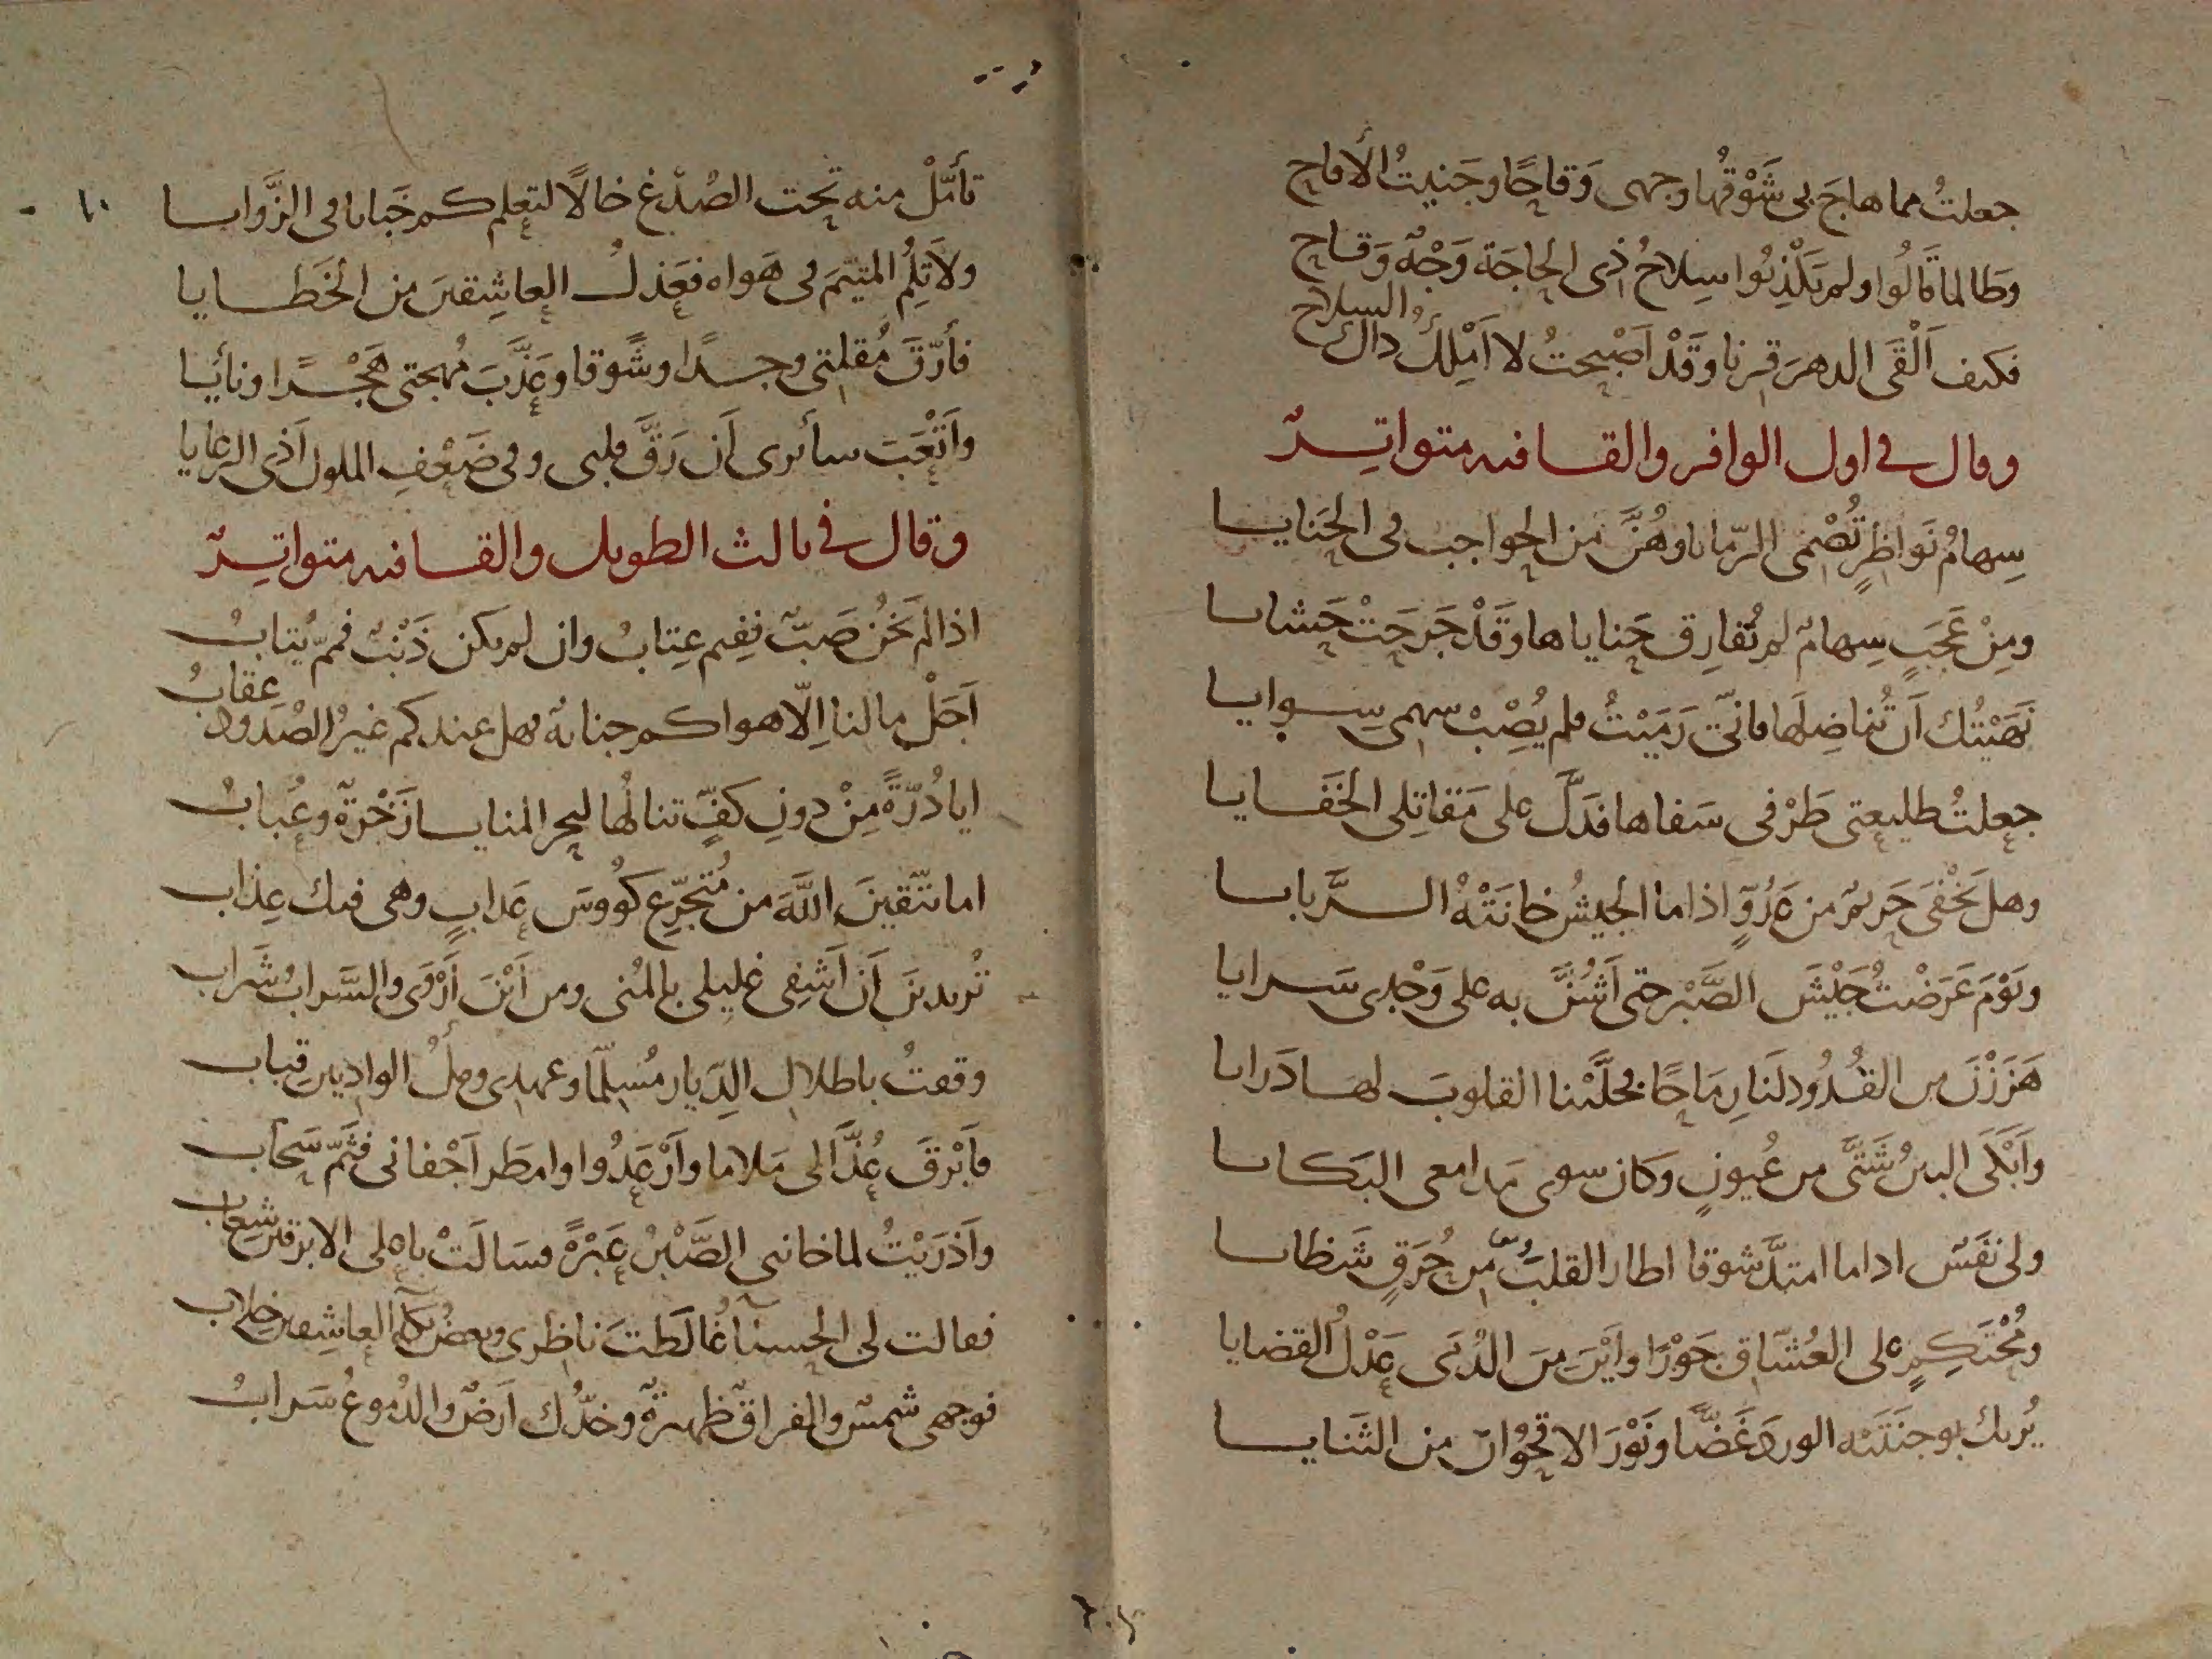 جعلتُ مما هاجَ بي شَوْقُها وجهى وَقاحًا وجَنيتُ الأقاح
وطَالما قالُوا ولم يَكْذِبُوا سِلاحُ ذِى الحاجَة وَجْهٌ وَقاح
فكيف اَلْقَى الدهرَ قِرنا وقَدْ اَصْبحتُ لا اَمْلِكُ ذاكَ السلاح
وقال في اول الوافر والقافيه متواتِرٌ
سِهامُ نَواظِرٍ تُصْمى الرّمايا وهُنَّ من الحواجب فى الحَنايا
ومِنْ عَجَبٍ سِهامٌ لم تُفارِق حَناياها وقَدْ جَرحَتْ حَشايا
نَهَيْتُك اَن تُناضِلَها فانّى رَمَيْتُ فلم يُصِبْ سهمى سِوايا
جعلتُ طليعتى طَرْفى سَفاها فدَلَّ على مَقاتِلى الخَفايا
وهل يَخْفَى حَريمٌ من عَدُوٍّ اذا ما الجيشُ خانَتْهُ السَّرايا
ويَوْمَ عَرَضْتُ جَيْشَ الصَّبْر حتى اَشُنَّ به على وَجْدى سَرايا
هَزَزْنَ من القُدُود لنَا رِمَاحًا فخلَّيْنا القلوبَ لها دَرايا
واَبْكَى البينُ شَتَّى من عُيونٍ وكان سوى مَدامعى البَكايا
ولى نَفَسٌ اذا ما امتدَّ شوقا اطار القلبَ من حُرَقٍ شَظايا
ومُحْتَكِمٍ على العُشّاق جَوْرًا واَيْنَ منَ الدُمَى عَدْلُ القضايا
يُريك بوجنَتَيْه الوردَ غَضًّا ونَوْرَ الاقحُوان من الثَنايا
تأمّلْ منه تحت الصُدْغ خالًا لتعلم كم خَبايا فى الزَّوايا
ولاَ تلُمِ المتيّمَ فى هَواه فعَذلُ العاشِقينَ من الخَطايا
فأرّقَ مُقلتى وجدًا وشَوقا وعَذَّبَ مُهجتى هَجْرًا ونأيا
واَتْعَبَ سائرى اَن رَقَّ قلبى وفى ضَعْفِ الملول اَذى الرعايا
وقال في ثالث الطويل والقافيه متواتِرٌ
اذا لم يَخُن صَبٌّ ففِيم عِتابُ وان لم يكن ذَنْبٌ فممّ يُتابُ
اَجَلْ ما لنا اِلّا هواكم جنايةٌ فهل عندكم غيرُ الصُدُود عِقابُ
ايا دُرّةً مِنْ دونِ كفٍّ تنالُها لبحر المنايا زَخْرةٌ وعُبابُ
اما تتّقينَ اللَّهَ من مُتَجَرِّعٍ كؤوسَ عَذابٍ وهى فيك عِذاب
تُريدينَ اَن اَشفى غليلى بالمُنى ومن اَيْنَ اَرْوَى والسَّرابُ شَراب
وقفتُ باطلال الدِيار مُسلّما وعهدى وملُ الوادِيين قِباب
فاَبْرقَ عُذّالى مَلاما واَرْعَدُوا وامطَر اَجْفانى فثَمّ سَحاب
واَذرَيْتُ لما خاننى الصَّبْرُ عَبْرةً فسَالَتْ باعلى الابرقين شِعاب
فقالت لى الحسناءُ غالَطتَ ناظرى وبعضُ بكاءِ العاشِقين خِلاب
فوجهى شمسٌ والفراقُ ظهيرةٌ وخدُّك اَرضٌ والدُموعُ سَرابُ
١٠